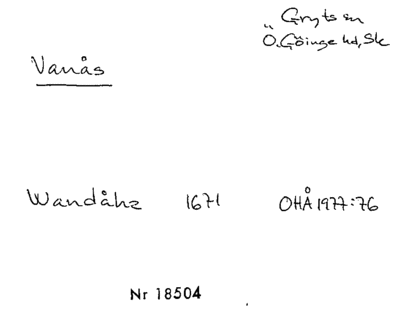 Gryts sn
Ö. Göinge hd, Sk
Vanås
Wandåhz 1671 OHÅ 1977:76
Nr 18504